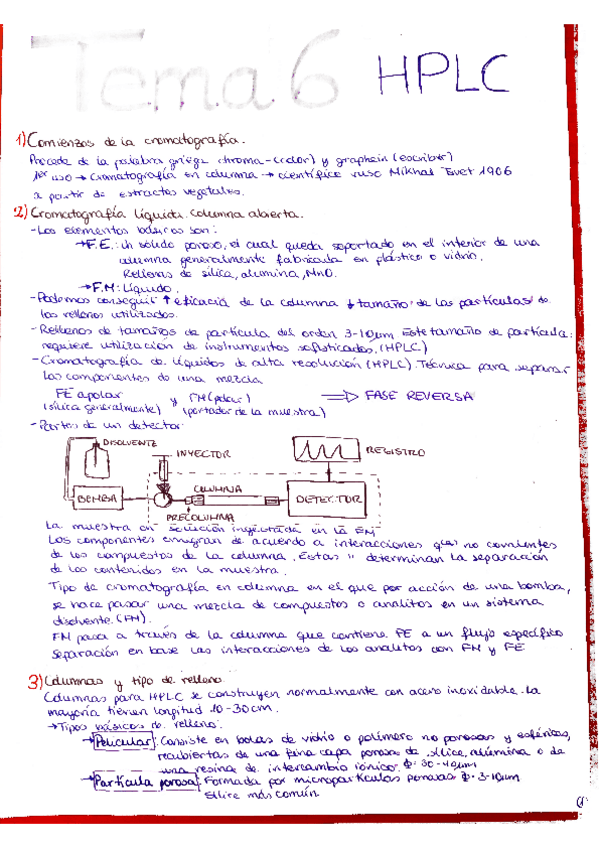 Tema 6 HPLC
1) Comienzos de la cromatografía.
Procede de la palabra griega chroma-(color) y graphein (escribir)
1er uso → cromatografía en columna → científico ruso Mikhail Tswet 1906
a partir de extractos vegetales.
2) Cromatografía líquida. Columna abierta.
- Los elementos básicos son:
→ F.E.: Un sólido poroso, el cual queda soportado en el interior de una
columna generalmente fabricada en plástico o vidrio.
Rellenos de sílica, alumina, MnO.
→ F.M: Líquido.
- Podemos conseguir ↑ eficacia de la columna ↓ tamaño de las partículas de
los rellenos utilizados.
- Rellenos de tamaños de partícula del orden 3-10µm Este tamaño de partícula
requiere utilización de instrumentos sofisticados. (HPLC)
- Cromatografía de líquidos de alta resolución (HPLC). Técnica para separar
los componentes de una mezcla
FE apolar y FM (polar) ⇒ FASE REVERSA
(sílica generalmente) (portador de la muestra)
- Partes de un detector:
DISOLVENTE
INYECTOR
REGISTRO
BOMBA
COLUMNA
DETECTOR
PRECOLUMNA
La muestra en solución inyectada en la FM
Los componentes emigran de acuerdo a interacciones no covalentes
de los compuestos de la columna. Estas " determinan la separación
de los contenidos en la muestra.
Tipo de cromatografía en columna en el que por acción de una bomba,
se hace pasar una mezcla de compuestos o analitos en un sistema
disolvente. (FM).
FM pasa a través de la columna que contiene FE a un flujo específico
separación en base las interacciones de los analitos con FM y FE
3) Columnas y tipo de relleno.
Columnas para HPLC se construyen normalmente con acero inoxidable. La
mayoría tienen longitud 10-30cm.
→ Tipos básicos de relleno:
→ Pelicular: Consiste en bolas de vidrio o polímero no porosas y esféricas,
recubiertas de una fina capa porosa de sílice, alúmina o de
una resina de intercambio iónico. φ: 30-40µm
→ Partícula porosa: Formada por micropartículas porosas φ: 3-10µm
Sílice más común.